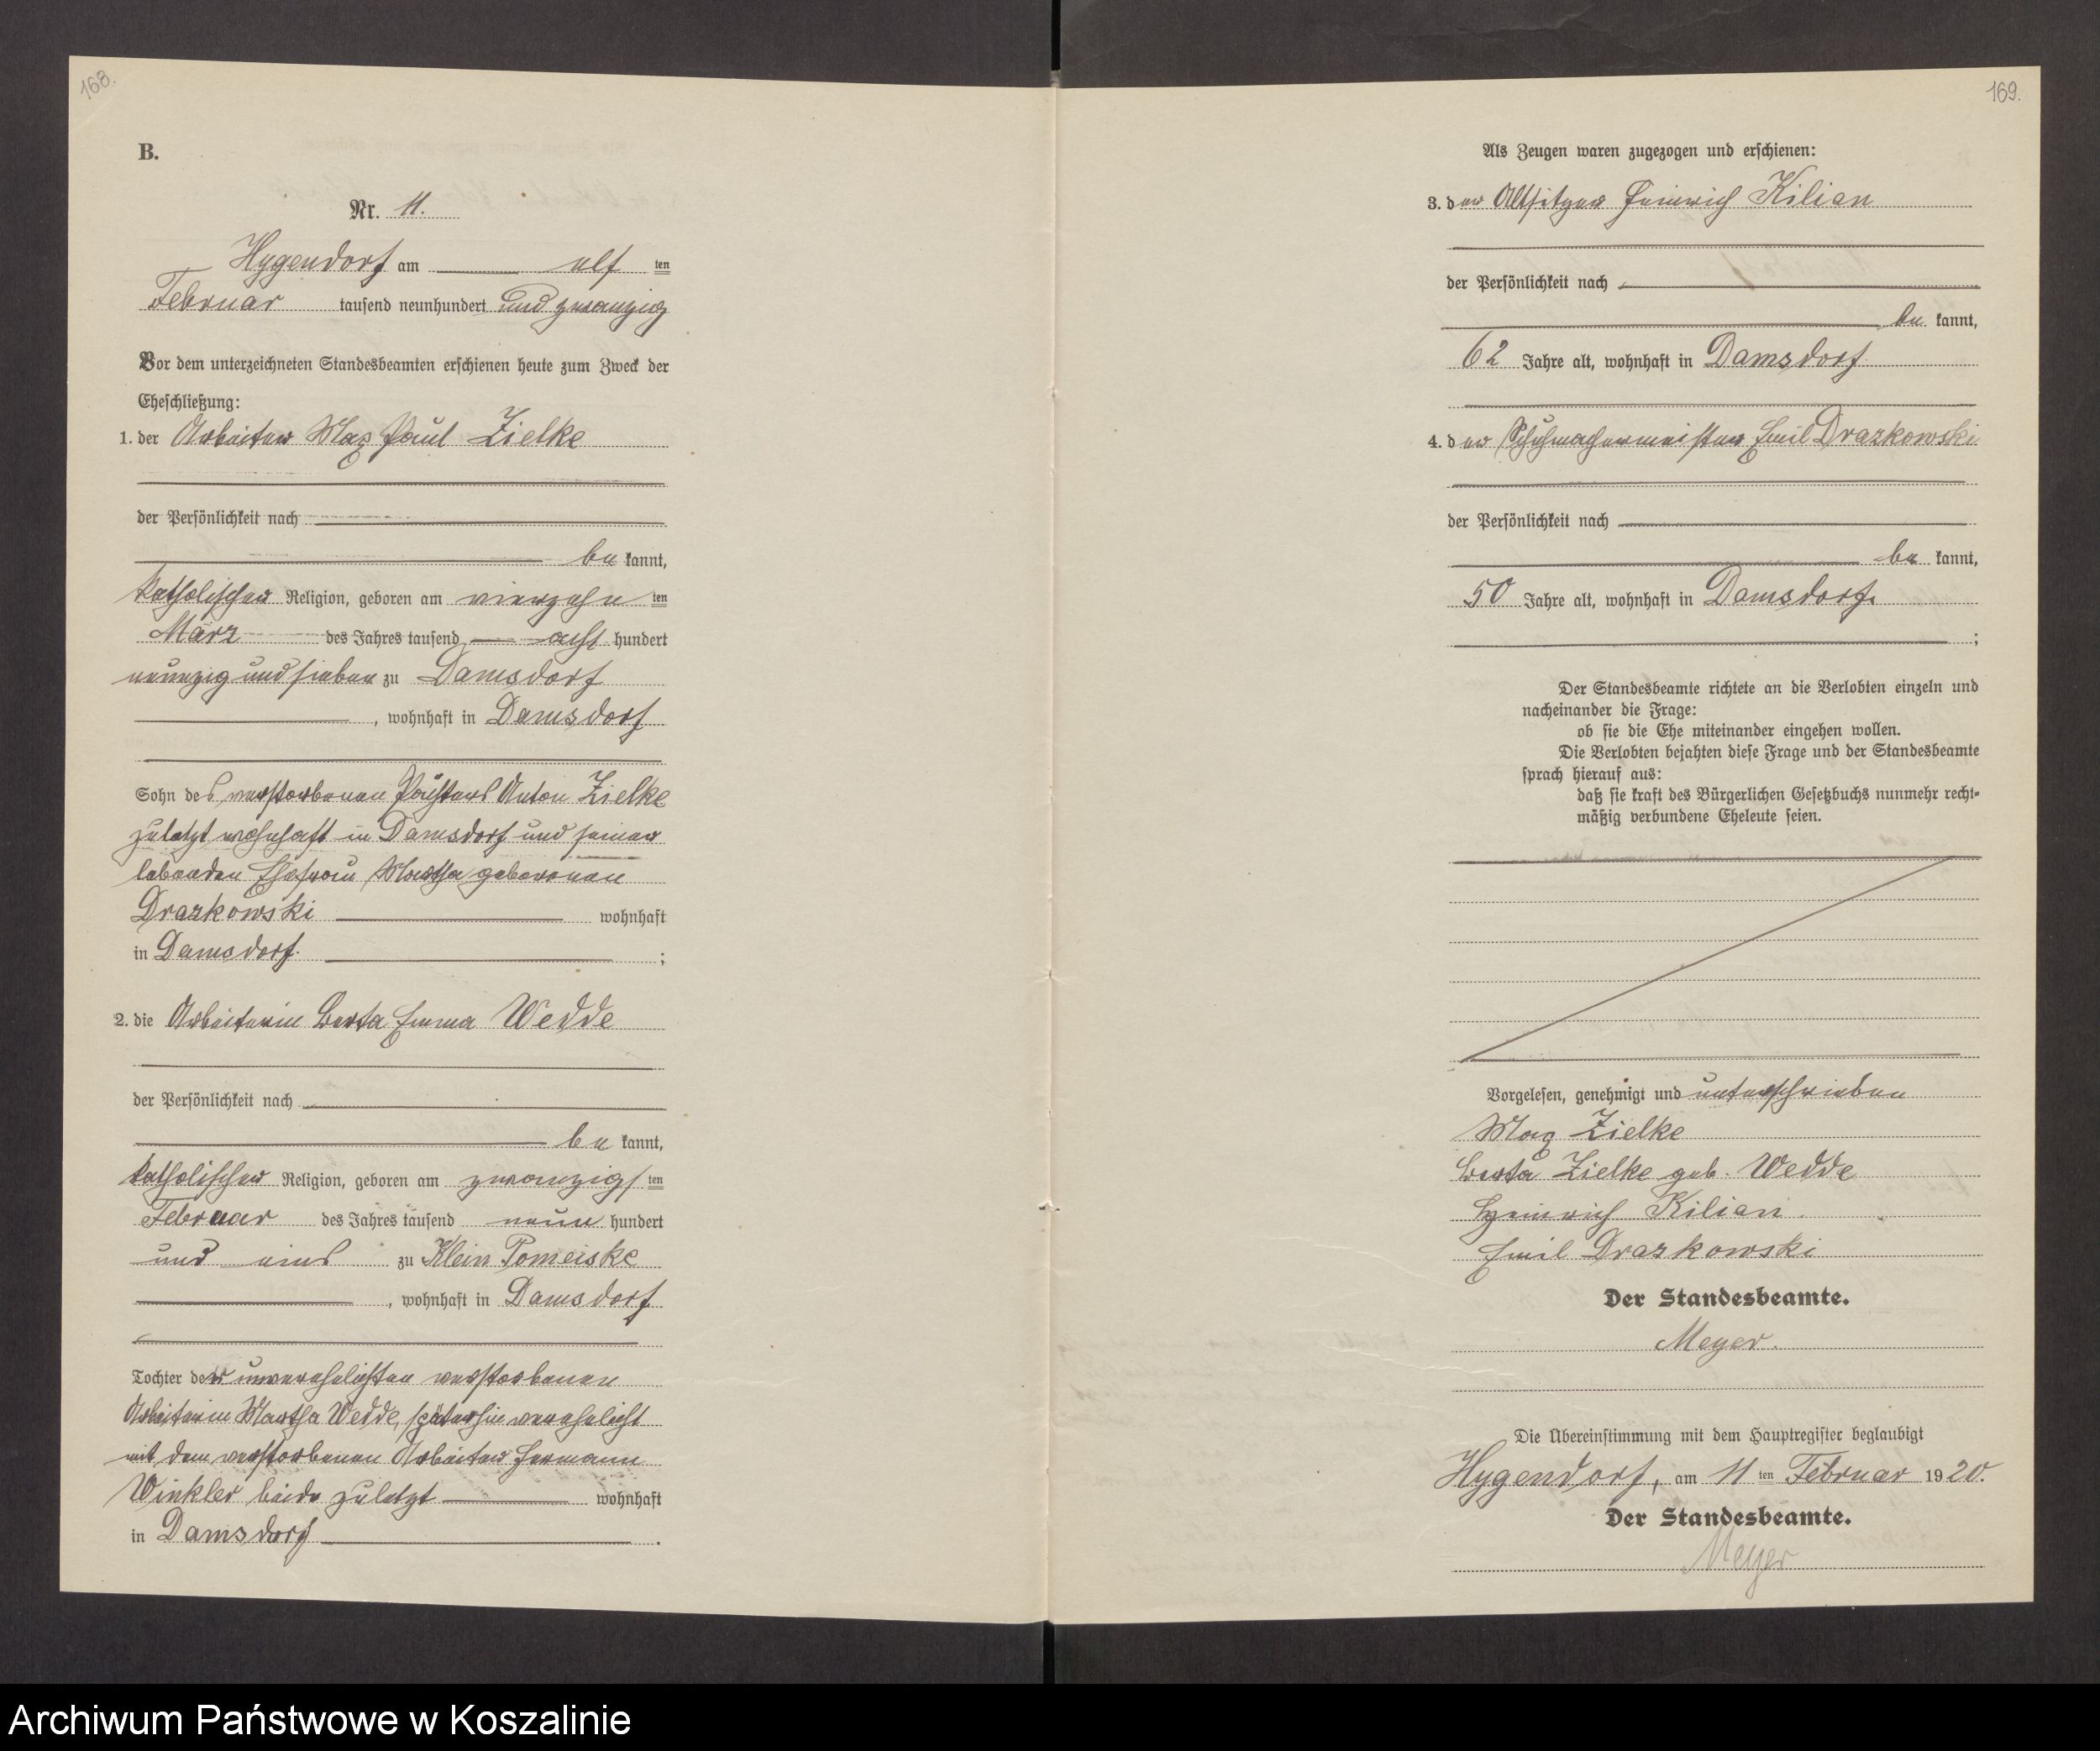 168.
B.
Nr. 11.
Hygendorf am elf ten
Februar tausend neunhundert und zwanzig
Vor dem unterzeichneten Standesbeamten erschienen heute zum Zweck der
Eheschließung:
1. der Arbeiter Max Paul Zielke
der Persönlichkeit nach
be kannt,
katholischer Religion, geboren am vierzehn ten
März des Jahres tausend acht hundert
neunzig und sieben zu Damsdorf
, wohnhaft in Damsdorf
Sohn des verstorbenen Anton Zielke
zuletzt wohnhaft in Damsdorf und seiner
lebenden Ehefrau Martha geborenen
Drazkowski wohnhaft
in Damsdorf. ;
2. die Arbeiterin Berta Emma Wedde
der Persönlichkeit nach
be kannt,
katholischer Religion, geboren am zwanzigs ten
Februar des Jahres tausend neun hundert
und eins zu Klein Pomeiske
, wohnhaft in Damsdorf
Tochter der unverehelichten verstorbenen
Arbeiterin Martha Wedde, späterhin verehelicht
mit dem verstorbenen Arbeiter Hermann
Winkler beide zuletzt wohnhaft
in Damsdorf .
169.
Als Zeugen waren zugezogen und erschienen:
3. der Altsitzer Heinrich Kilian
der Persönlichkeit nach
be kannt,
62 Jahre alt, wohnhaft in Damsdorf
4. der Schuhmachermeister Emil Drazkowski
der Persönlichkeit nach
be kannt,
50 Jahre alt, wohnhaft in Damsdorf.
;
Der Standesbeamte richtete an die Verlobten einzeln und
nacheinander die Frage:
ob sie die Ehe miteinander eingehen wollen.
Die Verlobten bejahten diese Frage und der Standesbeamte
sprach hierauf aus:
daß sie kraft des Bürgerlichen Gesetzbuchs nunmehr recht-
mäßig verbundene Eheleute seien.
Vorgelesen, genehmigt und unterschrieben
Max Zielke
Berta Zielke geb. Wedde
Heinrich Kilian.
Emil Drazkowski
Der Standesbeamte.
Meyer.
Die Übereinstimmung mit dem Hauptregister beglaubigt
Hygendorf, am 11 ten Februar 1920.
Der Standesbeamte.
Meyer
Archiwum Państwowe w Koszalinie